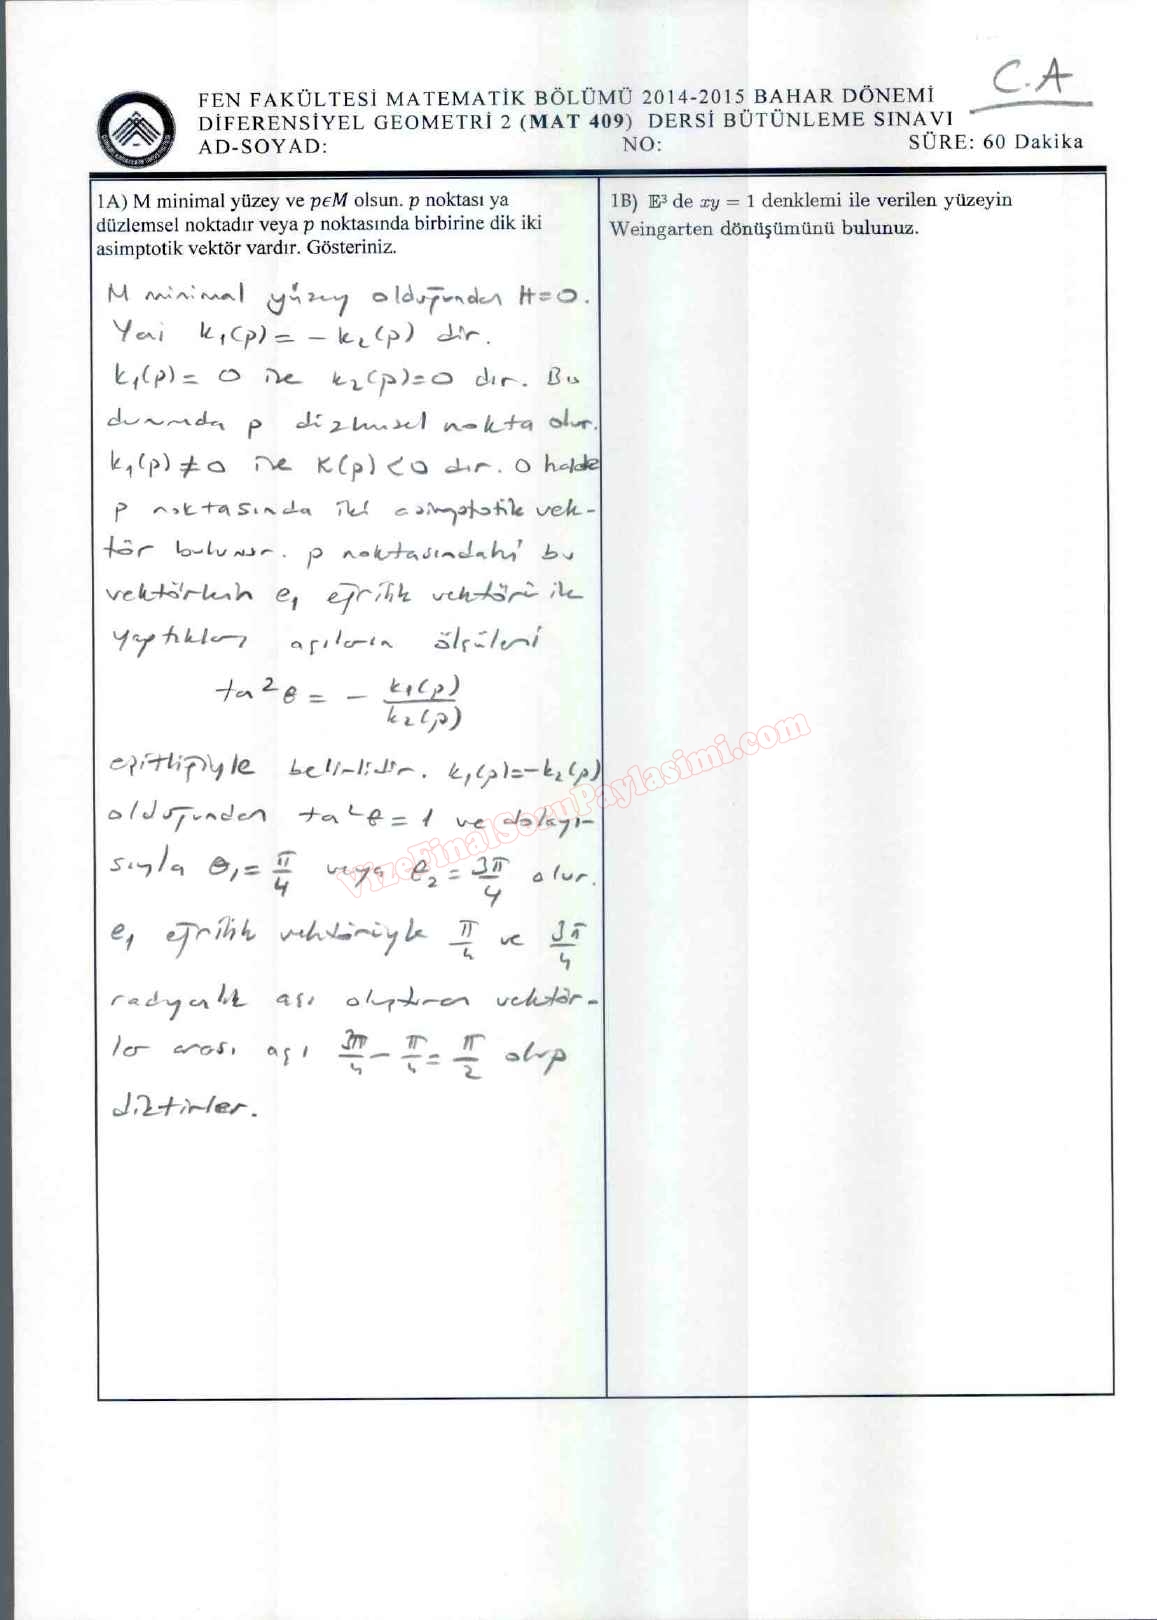 C.A
FEN FAKÜLTESİ MATEMATİK BÖLÜMÜ 2014-2015 BAHAR DÖNEMİ
DİFERENSİYEL GEOMETRİ 2 (MAT 409) DERSİ BÜTÜNLEME SINAVI
AD-SOYAD: NO: SÜRE: 60 Dakika
1A) M minimal yüzey ve pϵM olsun. p noktası ya
düzlemsel noktadır veya p noktasında birbirine dik iki
asimptotik vektör vardır. Gösteriniz.
M minimal yüzey olduğundan H=0.
Yani k₁(p) = - k₂(p) dir.
k₁(p) = 0 ise k₂(p)=0 dır. Bu
durumda p düzlemsel nokta olur.
k₁(p) ≠ 0 ise K(p) < 0 dır. O halde
p noktasında iki asimptotik vek-
tör bulunur. p noktasındaki bu
vektörlerin e₁ eğrilik vektörü ile
yaptıkları açıların ölçüleri
tan²θ = - k₁(p)/k₂(p)
eşitliğiyle belirlidir. k₁(p)=-k₂(p)
olduğundan tan²θ = 1 ve dolayı-
sıyla θ₁ = π/4 veya θ₂ = 3π/4 olur.
e₁ eğrilik vektörüyle π/4 ve 3π/4
radyanlık açı oluşturan vektör-
ler arası açı 3π/4 - π/4 = π/2 olup
diktirler.
1B) 𝔼³ de xy = 1 denklemi ile verilen yüzeyin
Weingarten dönüşümünü bulunuz.
VizeFinalSoruPaylasimi.com